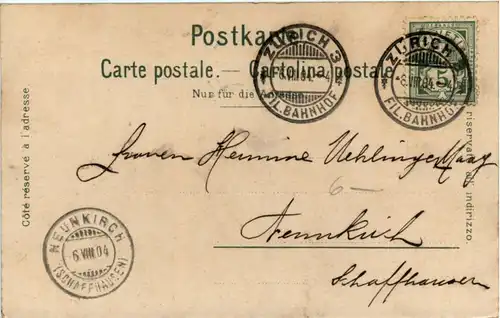 Postkarte.
Carte postale. — Cartolina postale.
Nur für die Adresse.
ZÜRICH 3
FIL. BAHNHOF
ZÜRICH 3
6.VIII.04
FIL. BAHNHOF
5
Côté réservé à l'adresse.
riservato all' indirizzo.
Hermine Uehlinger Maag
6-
Neunkirch
Schaffhausen
NEUNKIRCH
6.VIII.04
(SCHAFFHAUSEN)